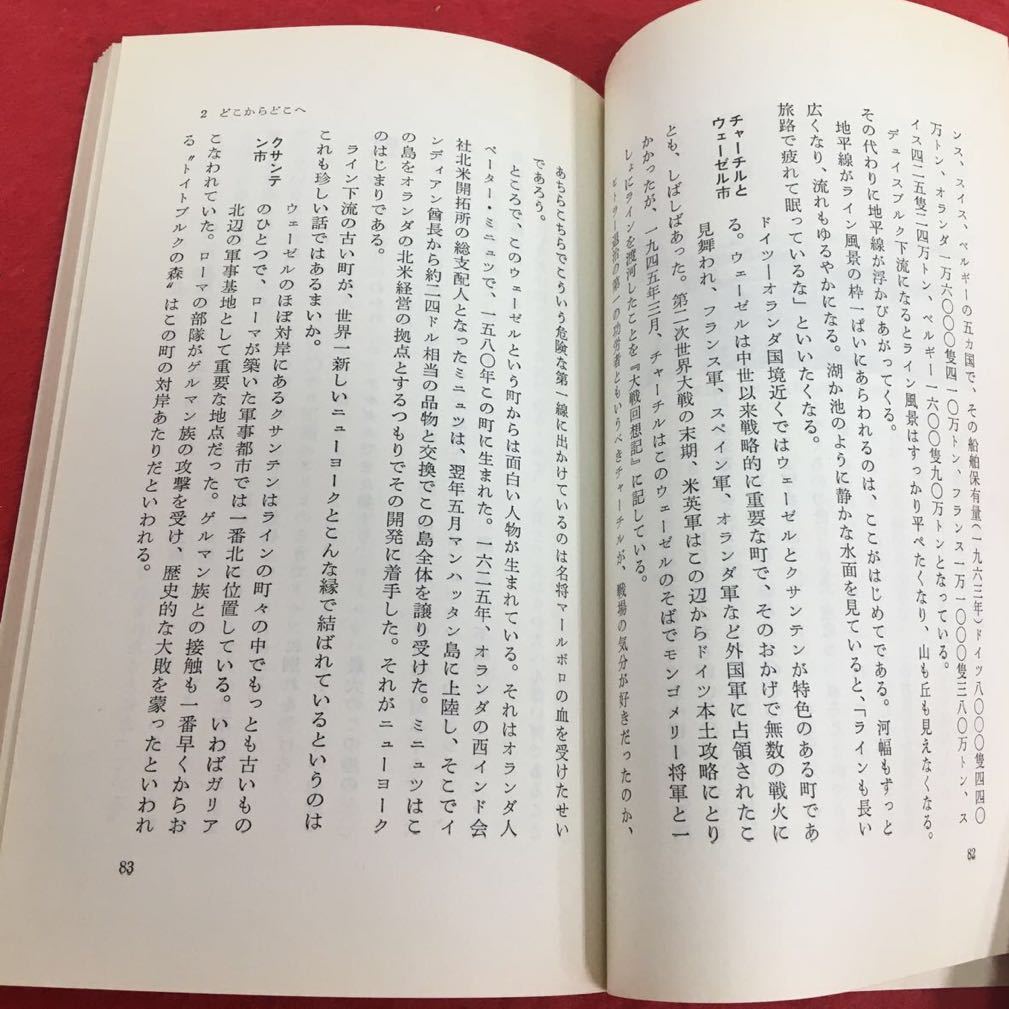 ンス、スイス、ベルギーの五カ国で、その船舶保有量(一九六三年)ドイツ八〇〇〇隻四四〇
万トン、オランダ一万六〇〇〇隻四一〇万トン、フランス一万一〇〇〇隻三八〇万トン、ス
イス四二五隻二四万トン、ベルギー一六〇〇隻九〇万トンとなっている。
デュイスブルク下流になるとライン風景はすっかり平べたくなり、山も丘も見えなくなる。
その代わりに地平線が浮かびあがってくる。
地平線がライン風景の枠一ぱいにあらわれるのは、ここがはじめてである。河幅もずっと
広くなり、流れもゆるやかになる。湖か池のように静かな水面を見ていると、「ラインも長い
旅路で疲れて眠っているな」といいたくなる。
チャーチルと
ウェーゼル市
ドイツ—オランダ国境近くではウェーゼルとクサンテンが特色のある町であ
る。ウェーゼルは中世以来戦略的に重要な町で、そのおかげで無数の戦火に
見舞われ、フランス軍、スペイン軍、オランダ軍など外国軍に占領されたこ
とも、しばしばあった。第二次世界大戦の末期、米英軍はこの辺からドイツ本土攻略にとり
かかったが、一九四五年三月、チャーチルはこのウェーゼルのそばでモンゴメリー将軍と一
しょにラインを渡河したことを『大戦回想記』に記している。
ヒトラー退治の第一の功労者ともいうべきチャーチルが、戦場の気分が好きだったのか、
82
あちらこちらでこういう危険な第一線に出かけているのは名将マールボロの血を受けたせい
であろう。
ところで、このウェーゼルという町からは面白い人物が生まれている。それはオランダ人
ペーター・ミニュツで、一五八〇年この町に生まれた。一六二五年、オランダの西インド会
社北米開拓所の総支配人となったミニュツは、翌年五月マンハッタン島に上陸し、そこでイ
ンディアン酋長から約二四ドル相当の品物と交換でこの島全体を譲り受けた。ミニュツはこ
の島をオランダの北米経営の拠点とするつもりでその開発に着手した。それがニューヨーク
のはじまりである。
ライン下流の古い町が、世界一新しいニューヨークとこんな縁で結ばれているというのは
これも珍しい話ではあるまいか。
クサンテ
ン市
ウェーゼルのほぼ対岸にあるクサンテンはラインの町々の中でもっとも古いもの
のひとつで、ローマが築いた軍事都市では一番北に位置している。いわばガリア
北辺の軍事基地として重要な地点だった。ゲルマン族との接触も一番早くからお
こなわれていた。ローマの部隊がゲルマン族の攻撃を受け、歴史的な大敗を蒙ったといわれ
る〝トイトブルクの森〟はこの町の対岸あたりだといわれる。
2 どこからどこへ
83